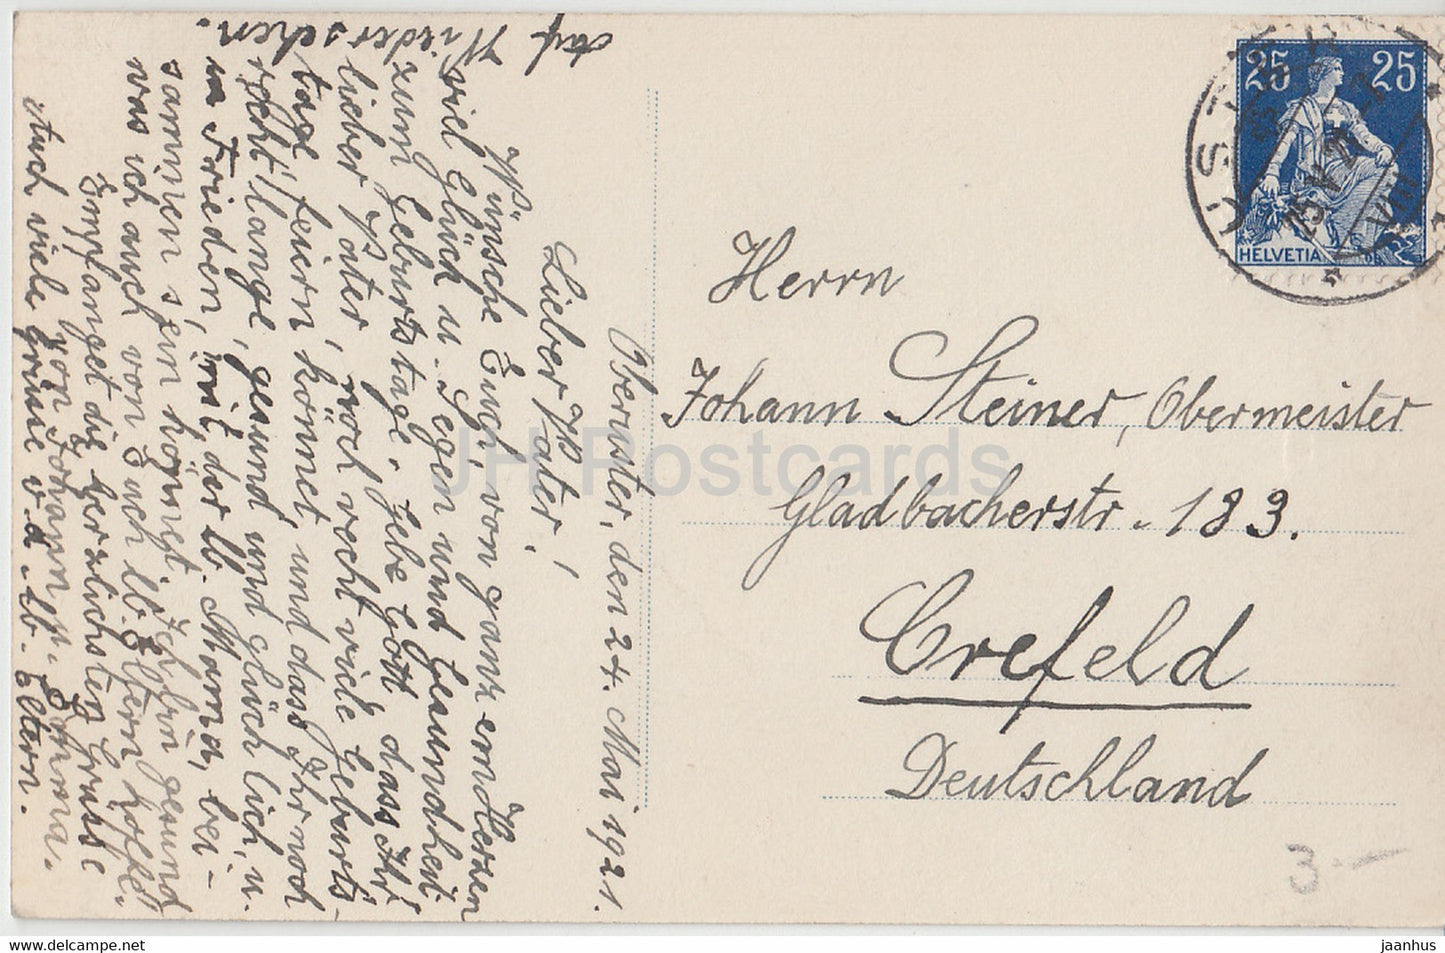 Oberuster, den 24. Mai 1921.
Lieber Vater!
Wünsche Euch, von ganzem Herzen
viel Glück u. Segen und Gesundheit
zum Geburtstage. Gebe Gott, dass Ihr
lieber Vater, noch recht viele Geburts-
tage feiern, könnet, und dass Ihr noch
recht lange, gesund und glücklich, u.
in Frieden, mit der lb. Mama, bei-
sammen sein könnt. Ich bin gesund
was ich auch von Euch lb. Eltern hoffe.
Empfanget die herzlichsten Grüsse
von Johann u. Emma.
Auch viele Grüsse v. d. lb. Eltern.
Auf Wiedersehen.
Herrn
Johann Steiner, Obermeister
Gladbacherstr. 183.
Crefeld
Deutschland
25 25
HELVETIA
USTER
25 V 21
VIII
3.-
JH Postcards
www.hippostcard.com
jaanhus